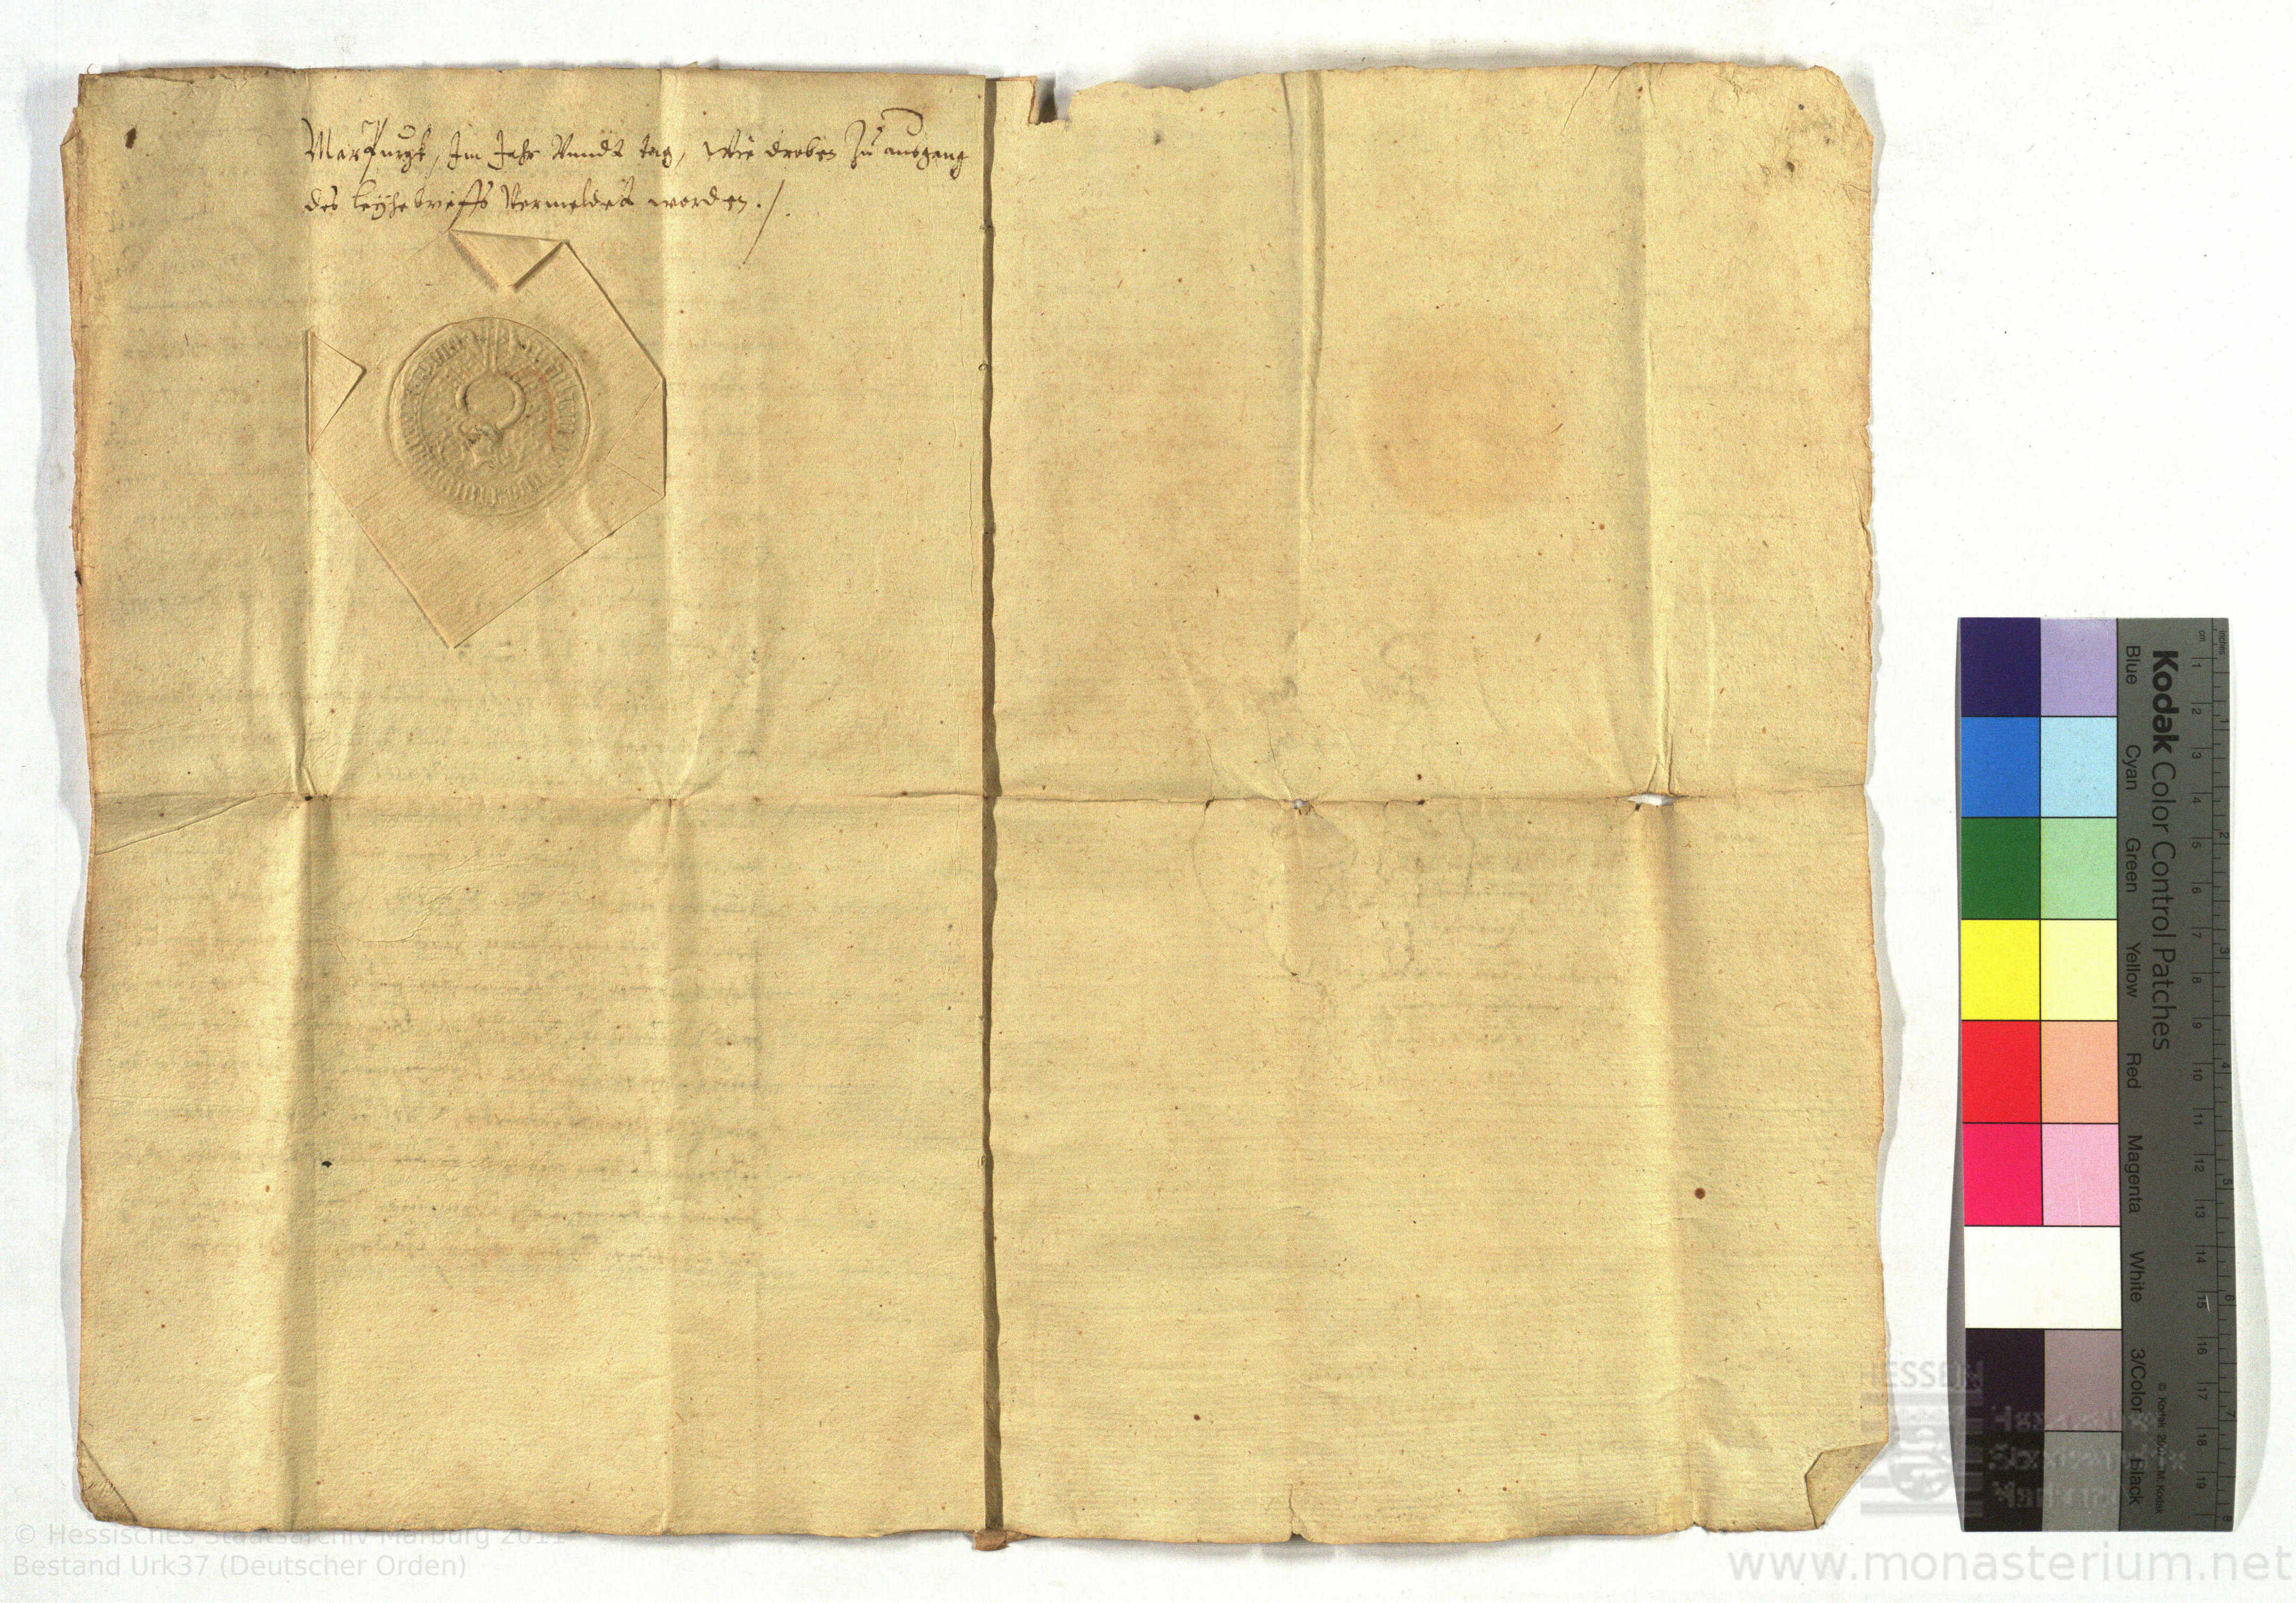 Marpurgk, Im Jahr Vnndt tag, Wie droben Zu ausgang
des leyhebrieffs Vermeldet worden ./.
Kodak Color Control Patches
Blue Cyan Green Yellow Red Magenta White 3/Color Black
inches
cm
1 2 3 4 5 6 7 8 9 10 11 12 13 14 15 16 17 18 19
1 2 3 4 5 6 7 8
HESSEN
© Hessisches Staatsarchiv Marburg 2011
Bestand Urk37 (Deutscher Orden)
www.monasterium.net